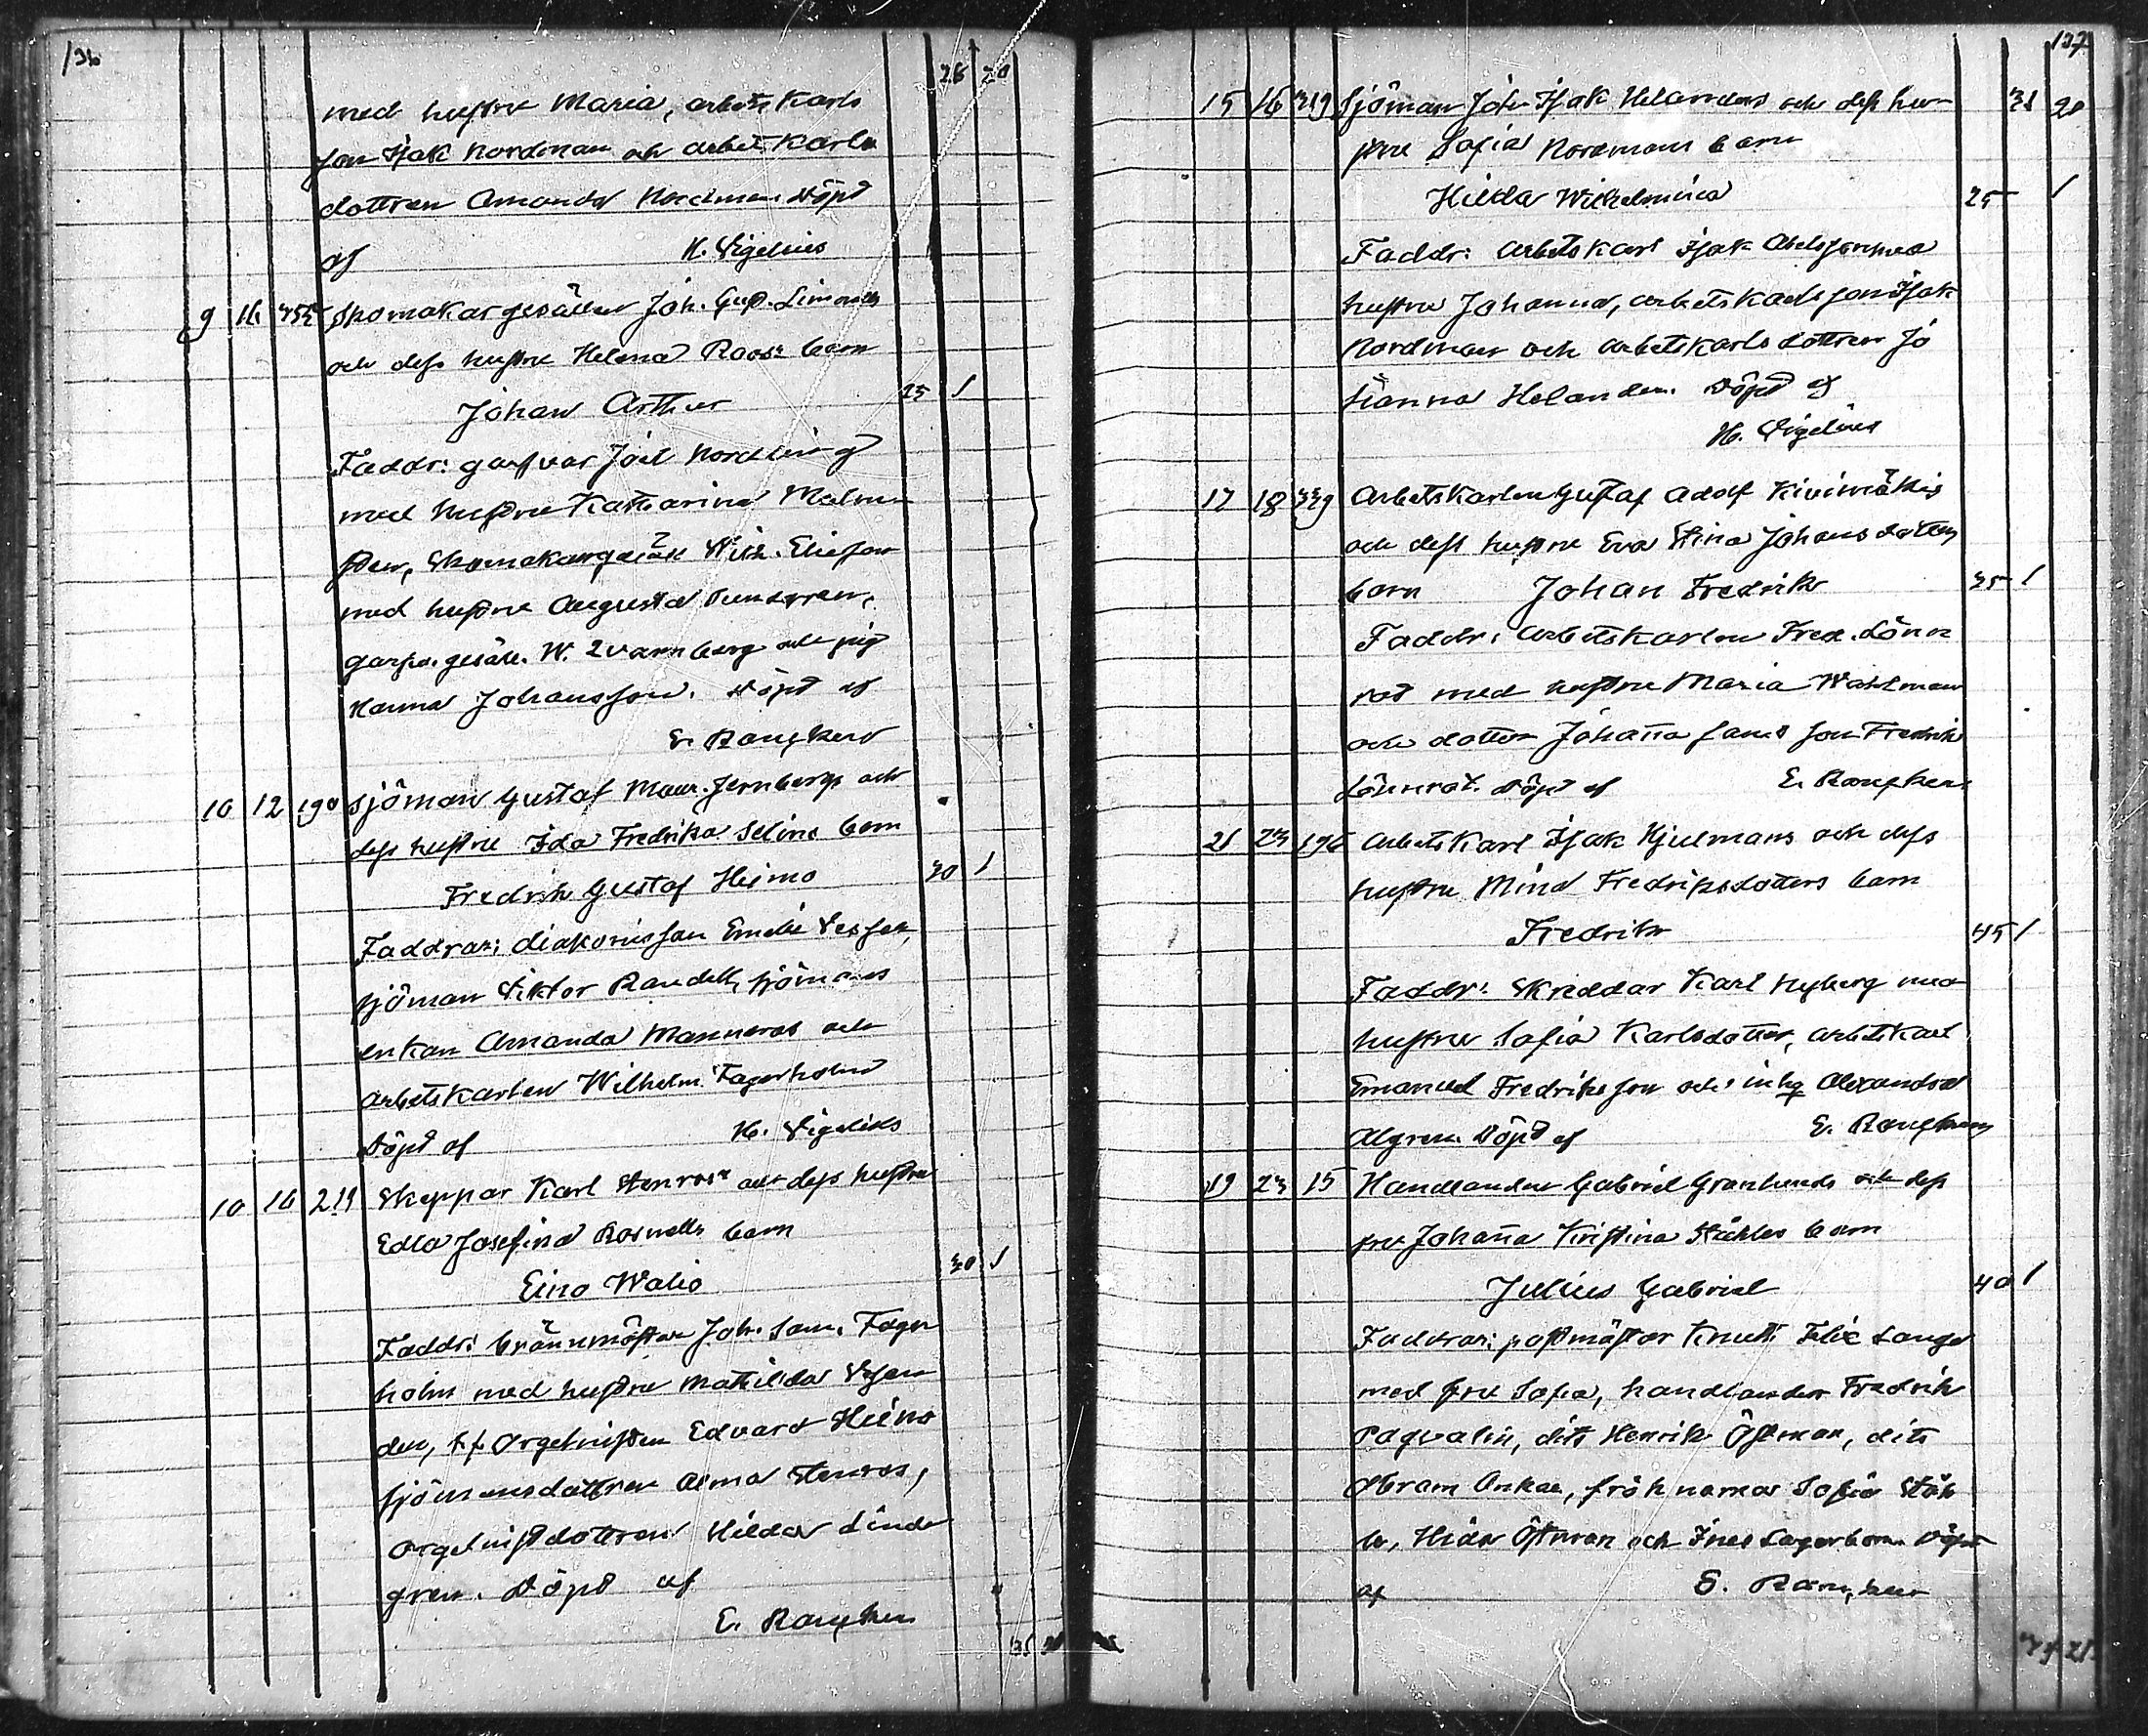 136
28 20
med hustru Maria, arbets Karls
son Isak Nordman och arbets Karls
dottren Amanda Nordman Döpt
af H. Vigelius
9 16 Skomakar gesällen Joh. Gust.
och dess hustru Helena Roos: barn
Johan Arthur 25 1
Faddr: garfvar Joel Nordling
med hustru Katharina Malm
sten, Skomakargesäll Wilh. Eliesson
med hustru Augusta
garfva. gesäll. W. Qvarnberg och pig
Hanna Johansson. Döpt af
E. Rougken
10 12 190 Sjöman Gustaf Maur. Jernbergs och
dess hustru Ida Fredrika Selins barn
Fredrik Gustaf Heimo 30 1
Faddrar: diakonissan Emelie
sjöman Viktor Randell, sjömans
enkan Amanda Manneros och
arbetskarlen Wilhelm Fagerholm
Döpt af H. Vigelius
10 16 211 Skeppar Karl Stenros och dess hustru
Edla Josefina Rosnells barn
Eino Walio 30 1
Faddr: brännmästar Joh. Sam. Fager
holm med hustru Mathilda
den, t.f. Orgelnisten Edvard Heino
sjömansdottren Alma Stenros,
orgelnistdottren Hilda Lind
gren. Döpt af
E. Rougken
31
137
15 16 319 Sjöman Joh. Isak Helanders och dess hu 31 20
stru Sofia Nordmans barn
Hilda Wilhelmina 25 1
Faddr: arbetskarl Isak Abelsson med
hustru Johanna, arbetskarls son Isak
Nordman och arbetskarls dottren Jo
hanna Helander. Döpt af
H. Vigelius
17 18 339 Arbetskarlen Gustaf Adolf Kivimäkis
och dess hustru Eva Stina Johansdotters
barn Johan Fredrik 35 1
Faddr: Arbetskarlen Fred. Lönn
rot med hustru Maria Wahlman
och dotter Johanna samt son Fredrik
Lönnrot. Döpt af E. Rougken
21 23 196 Arbetskarl Isak Hjulmans och dess
hustru Mina Fredriksdotters barn
Fredrik 45 1
Faddr: Skreddar Karl Nyberg med
hustru Sofia Karlsdotter, arbetskarl
Emanuel Fredriksson och inhg Alexandra
Algren. Döpt af E. Rougken
19 23 15 Handlanden Gabriel Granlunds och dess
fru Johanna Kristina Ståhles barn
Julius Gabriel 40 1
Faddrar: postmästar Knut Felix Lange
med fru Sofia, handlanden Fredrik
Paqvalin, dito Henrik Östman, dito
Abram Onkae, fröknarna Sofia Ståh
le, Hilda Östman och Ines Lagerbom. Döpt
af E. Rougken